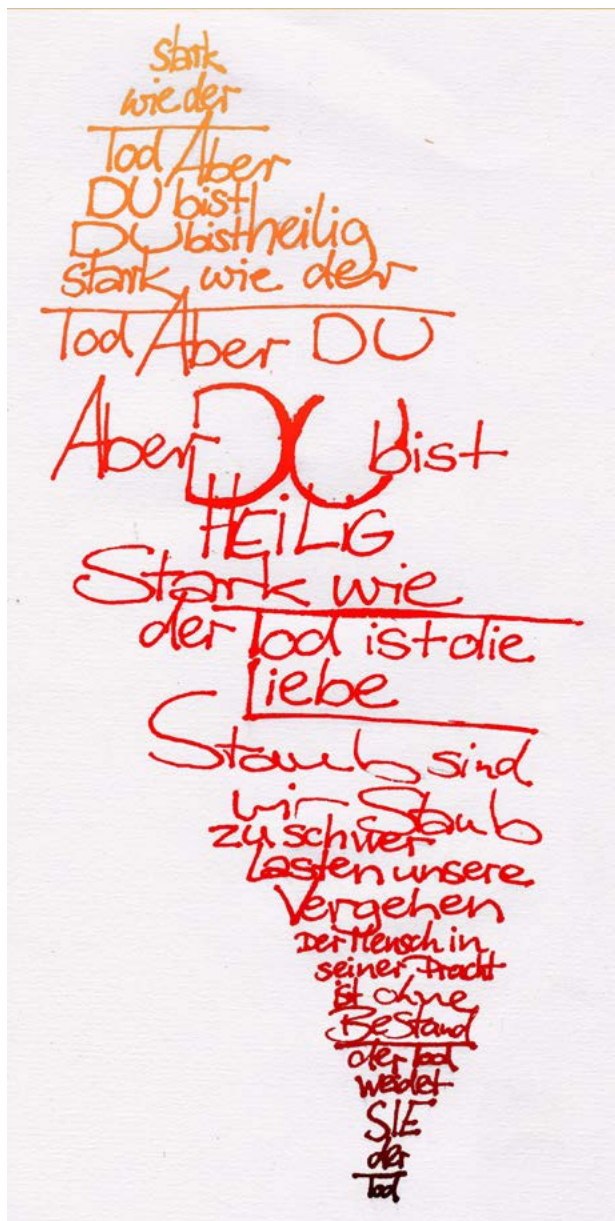 stark
wie der
Tod Aber
DU bist
DU bist heilig
stark wie der
Tod Aber DU
Aber DU bist
HEiLiG
Stark wie
der Tod ist die
Liebe
Staub sind
wir Staub
zu schwer
Lasten unsere
Vergehen
Der Mensch in
seiner Pracht
ist ohne
BeStand
der Tod
weidet
SIE
der
Tod